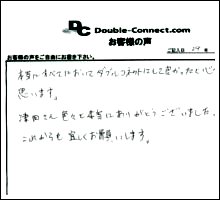 DC Double-Connect.com
お客様の声
お客様の声をご自由にお書き下さい。
ご記入日
本当にすべてにおいてダブルコネクトにして良かったと心
思います。
津田さん色々と本当にありがとうございました。
これからも宜しくお願いします。